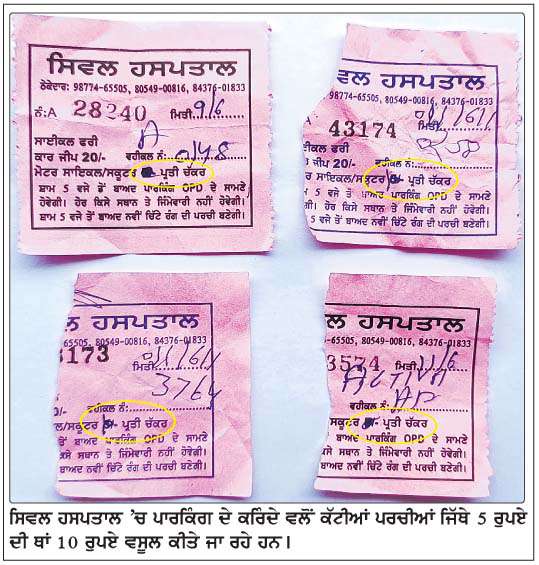 ਸਿਵਲ ਹਸਪਤਾਲ
ਠੇਕੇਦਾਰ: 98774-65505, 80549-00816, 84376-01833
ਨੰ:A 28240 ਮਿਤੀ 9/6
ਸਾਈਕਲ ਫਰੀ A
ਕਾਰ ਜੀਪ 20/- ਵਹੀਕਲ ਨੰ: 0148
ਮੋਟਰ ਸਾਇਕਲ/ਸਕੂਟਰ ਪ੍ਰਤੀ ਚੱਕਰ
ਸ਼ਾਮ 5 ਵਜੇ ਤੋਂ ਬਾਅਦ ਪਾਰਕਿੰਗ OPD ਦੇ ਸਾਮਣੇ
ਹੋਵੇਗੀ। ਹੋਰ ਕਿਸੇ ਸਥਾਨ ਤੇ ਜਿੰਮੇਵਾਰੀ ਨਹੀਂ ਹੋਵੇਗੀ।
ਸ਼ਾਮ 5 ਵਜੇ ਤੋਂ ਬਾਅਦ ਨਵੀਂ ਚਿੱਟੇ ਰੰਗ ਦੀ ਪਰਚੀ ਬਣੇਗੀ।
ਵਲ ਹਸਪਤਾਲ
65505, 80549-00816, 84376-01833
43174 ਮਿਤੀ 11/6/11
ਫਰੀ
20/- ਵਹੀਕਲ ਨੰ:
ਸਾਇਕਲ/ਸਕੂਟਰ /- ਪ੍ਰਤੀ ਚੱਕਰ
5 ਵਜੇ ਤੋ ਬਾਅਦ ਪਾਰਕਿੰਗ OPD ਦੇ ਸਾਮਣੇ
ਹੋਵੇਗੀ। ਹੋਰ ਕਿਸੇ ਸਥਾਨ ਤੇ ਜਿੰਮੇਵਾਰੀ ਨਹੀਂ ਹੋਵੇਗੀ।
5 ਵਜੇ ਤੋਂ ਬਾਅਦ ਨਵੀਂ ਚਿੱਟੇ ਰੰਗ ਦੀ ਪਰਚੀ ਬਣੇਗੀ।
ਵਲ ਹਸਪਤਾਲ
65505, 80549-00816, 84376-01833
3173 ਮਿਤੀ 11/6/11
3764
0/- ਵਹੀਕਲ ਨੰ:
ਲ/ਸਕੂਟਰ /- ਪ੍ਰਤੀ ਚੱਕਰ
ਤੋਂ ਬਾਅਦ ਪਾਰਕਿੰਗ OPD ਦੇ ਸਾਮਣੇ
ਕਿਸੇ ਸਥਾਨ ਤੇ ਜਿੰਮੇਵਾਰੀ ਨਹੀਂ ਹੋਵੇਗੀ।
ਬਾਅਦ ਨਵੀਂ ਚਿੱਟੇ ਰੰਗ ਦੀ ਪਰਚੀ ਬਣੇਗੀ।
ਹਸਪਤਾਲ
80549-00816, 84376-01833
3574 ਮਿਤੀ 11/6
ACTIVA
ਵਹੀਕਲ ਨੰ:
ਸਕੂਟਰ /- ਪ੍ਰਤੀ ਚੱਕਰ
ਬਾਅਦ ਪਾਰਕਿੰਗ OPD ਦੇ ਸਾਮਣੇ
ਸੇ ਸਥਾਨ ਤੇ ਜਿੰਮੇਵਾਰੀ ਨਹੀਂ ਹੋਵੇਗੀ।
ਬਾਅਦ ਨਵੀਂ ਚਿੱਟੇ ਰੰਗ ਦੀ ਪਰਚੀ ਬਣੇਗੀ।
ਸਿਵਲ ਹਸਪਤਾਲ 'ਚ ਪਾਰਕਿੰਗ ਦੇ ਕਰਿੰਦੇ ਵਲੋਂ ਕੱਟੀਆਂ ਪਰਚੀਆਂ ਜਿੱਥੇ 5 ਰੁਪਏ
ਦੀ ਥਾਂ 10 ਰੁਪਏ ਵਸੂਲ ਕੀਤੇ ਜਾ ਰਹੇ ਹਨ।